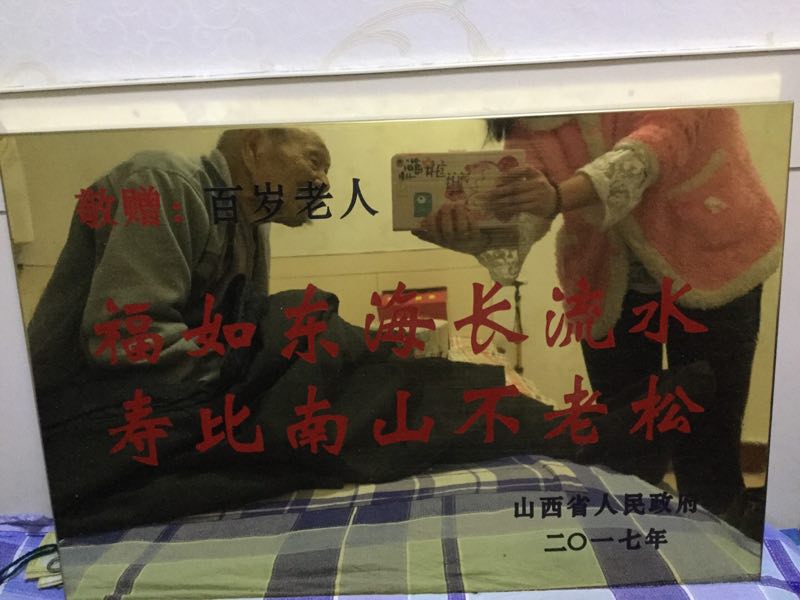 敬赠：百岁老人
福如东海长流水
寿比南山不老松
山西省人民政府
二〇一七年